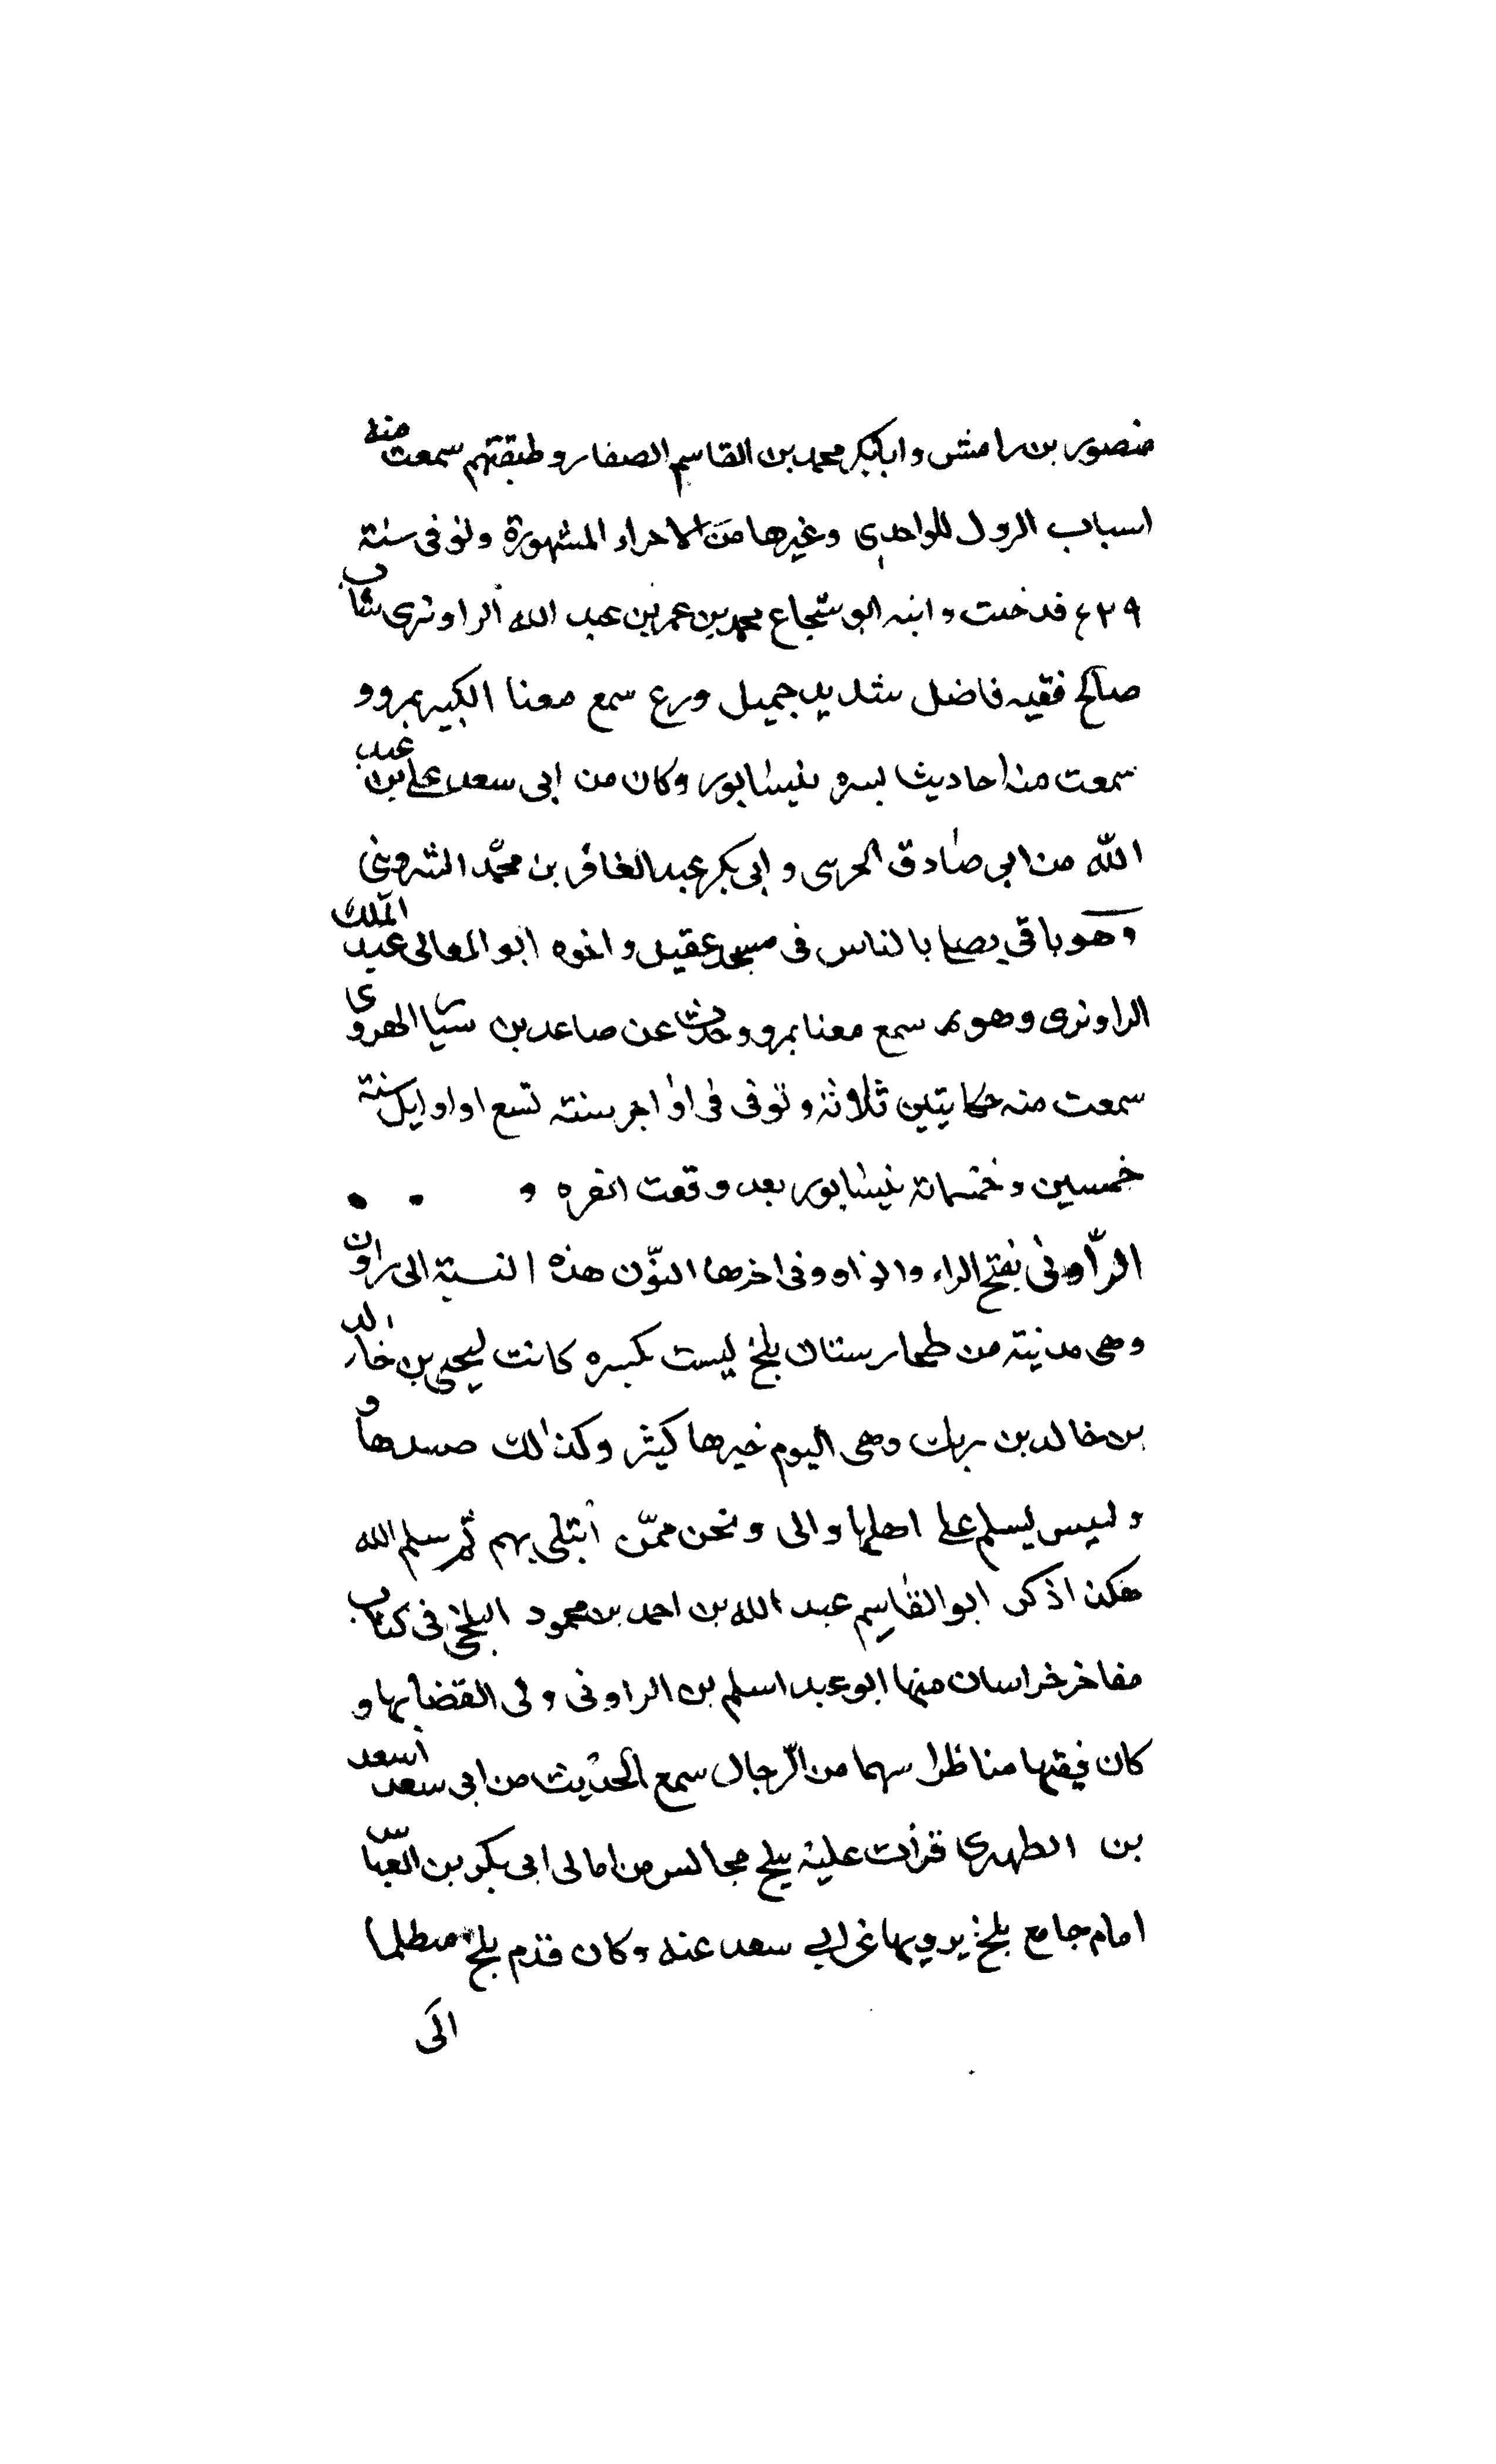 منصور بن رامش وابابكر محمد بن القاسم الصفار وطبقتهم سمعت منه
اسباب الرول للواحدي وغيرها من الاحراء المشهورة وتوفى سنة
٤٢٩ قد خلت وابنه ابو شجاع محمد بن عمر بن عبد الله الراونرى شاب
صالح فقيه فاضل شديد جميل ورع سمع معنا الكبير بمرو و
سمعت منه احاديث بسره بنيسابور وكان من ابى سعد على بن عبد
الله من ابى صادق الحرسى وابى بكر عبد الغافر بن محمد الشروينى
وهو باقى يصلى بالناس فى مسجد عقيل واخوه ابو المعالى عبد الملك
الراونرى وهو سمع معنا بمرو وحدث عن صاعد بن سيا الهروى
سمعت منه حكايتين ثلاثة وتوفى فى اواخر سنة تسع او اوايل سنة
خمسين وخمسمائة بنيسابور بعد وقعت الغره و
الراونى بفتح الراء والواو وفى اخرها النون هذه النسبة الى راون
وهى مدينة من طحارستان بلخ ليست بكبيره كانت ليحيى بن خالد
بن خالد بن برمك وهى اليوم خيرها كثير وكذلك صيدها و
وليس يسلم على اهلها والى ونحن ممن ابتلى بهم ثم سلم الله
هكذا ذكر ابو القاسم عبد الله بن احمد بن محمود البلخى فى كتاب
مفاخر خراسان منها ابو عبد اسلم بن الراونى ولى القضا بها و
كان فقيها مناظرا سهما من الرجال سمع الحديث من ابى سعد اسعد
بن الظهيرى قرات عليه ببلخ مجالس من امالى ابى بكر بن العباس
امام جامع بلخ يرويها عن ابي سعد عنه وكان قدم بلخ متظلما
الى